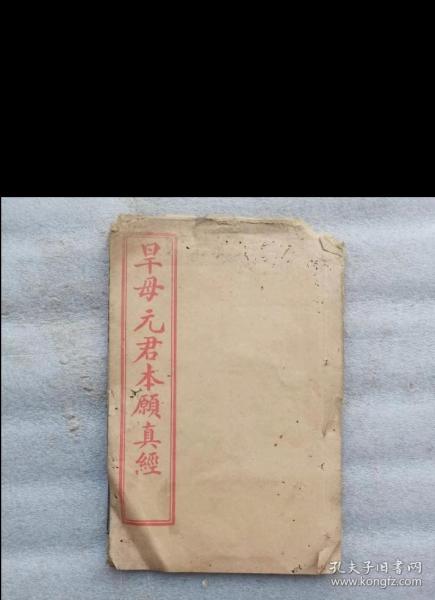 旱母元君本願真經
孔夫子旧书网
www.kongfz.com